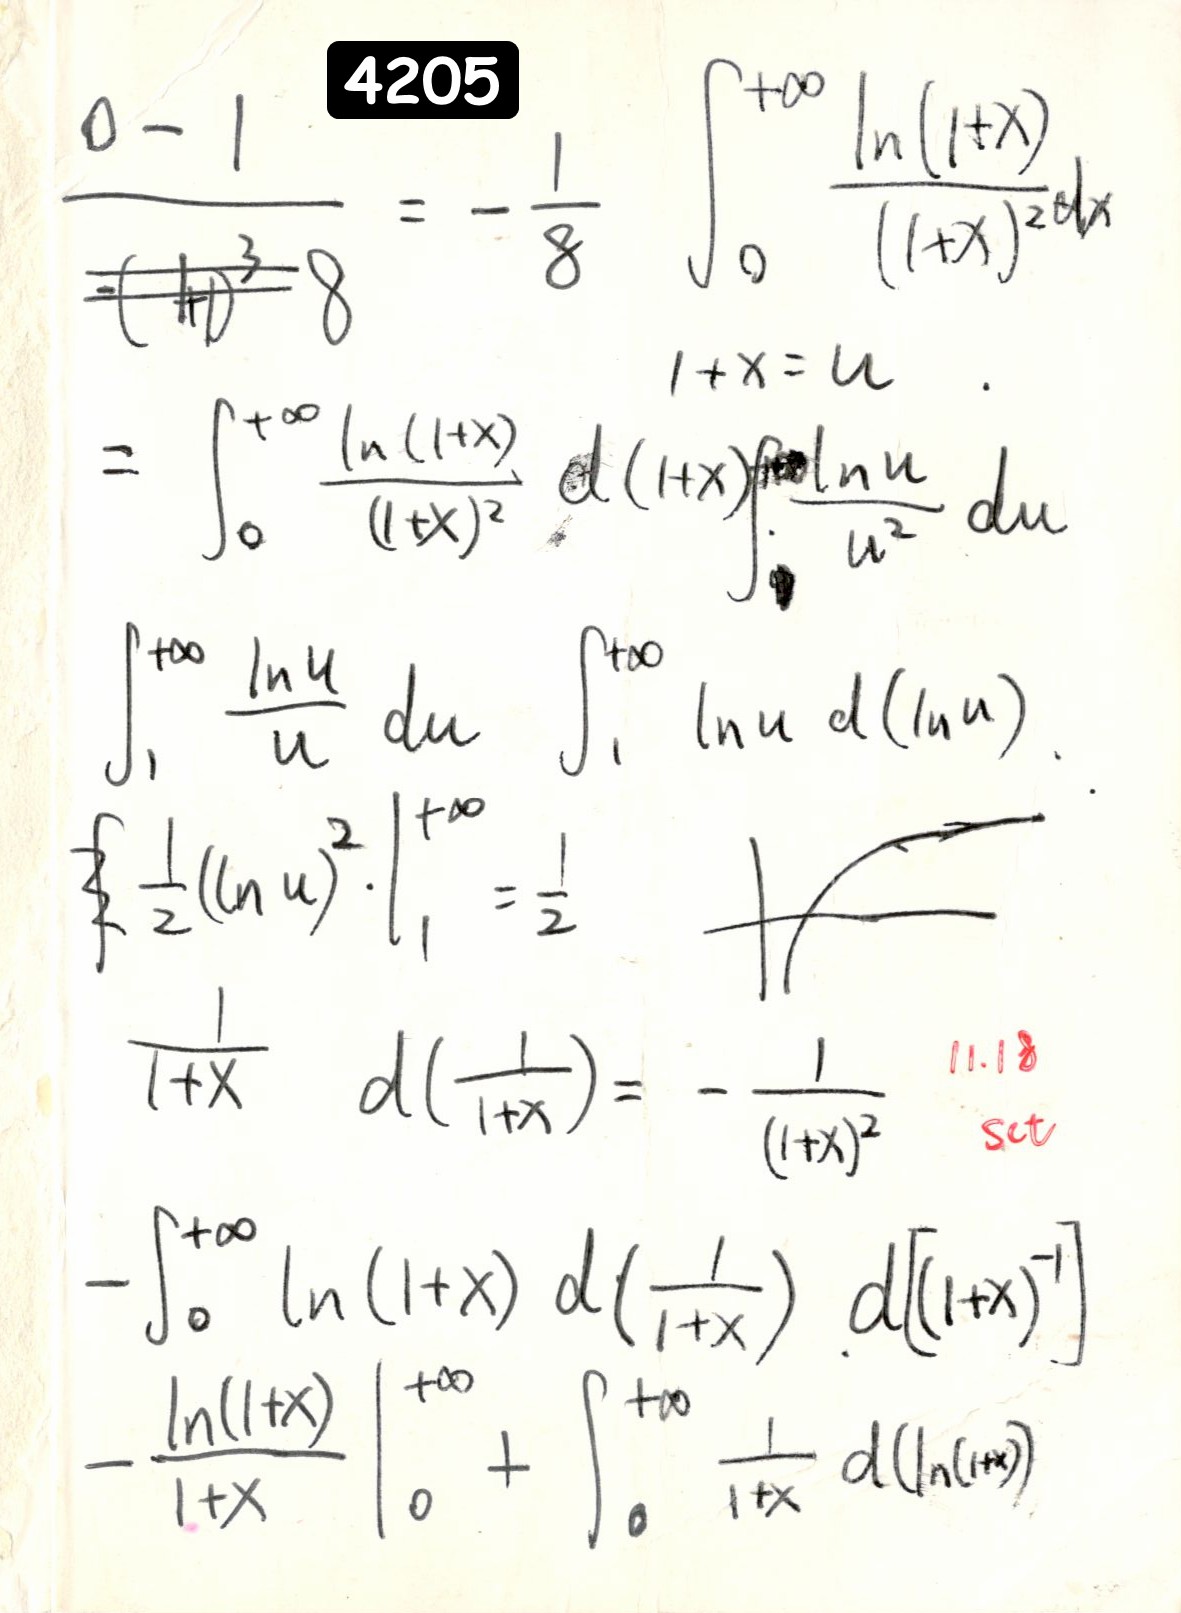 4205
0 - 1 / 8 = - 1/8
∫₀^{+∞} ln(1+x)/(1+x)² dx
1+x = u
= ∫₀^{+∞} ln(1+x)/(1+x)² d(1+x) ∫ lnu/u² du
∫₁^{+∞} lnu/u du ∫₁^{+∞} lnu d(lnu).
1/2 (ln u)² · |₁^{+∞} = 1/2
1/(1+x) d(1/(1+x)) = - 1/(1+x)²
11.18
sct
-∫₀^{+∞} ln(1+x) d(1/(1+x)) d[(1+x)^{-1}]
- ln(1+x)/(1+x) |₀^{+∞} + ∫₀^{+∞} 1/(1+x) d(ln(1+x))